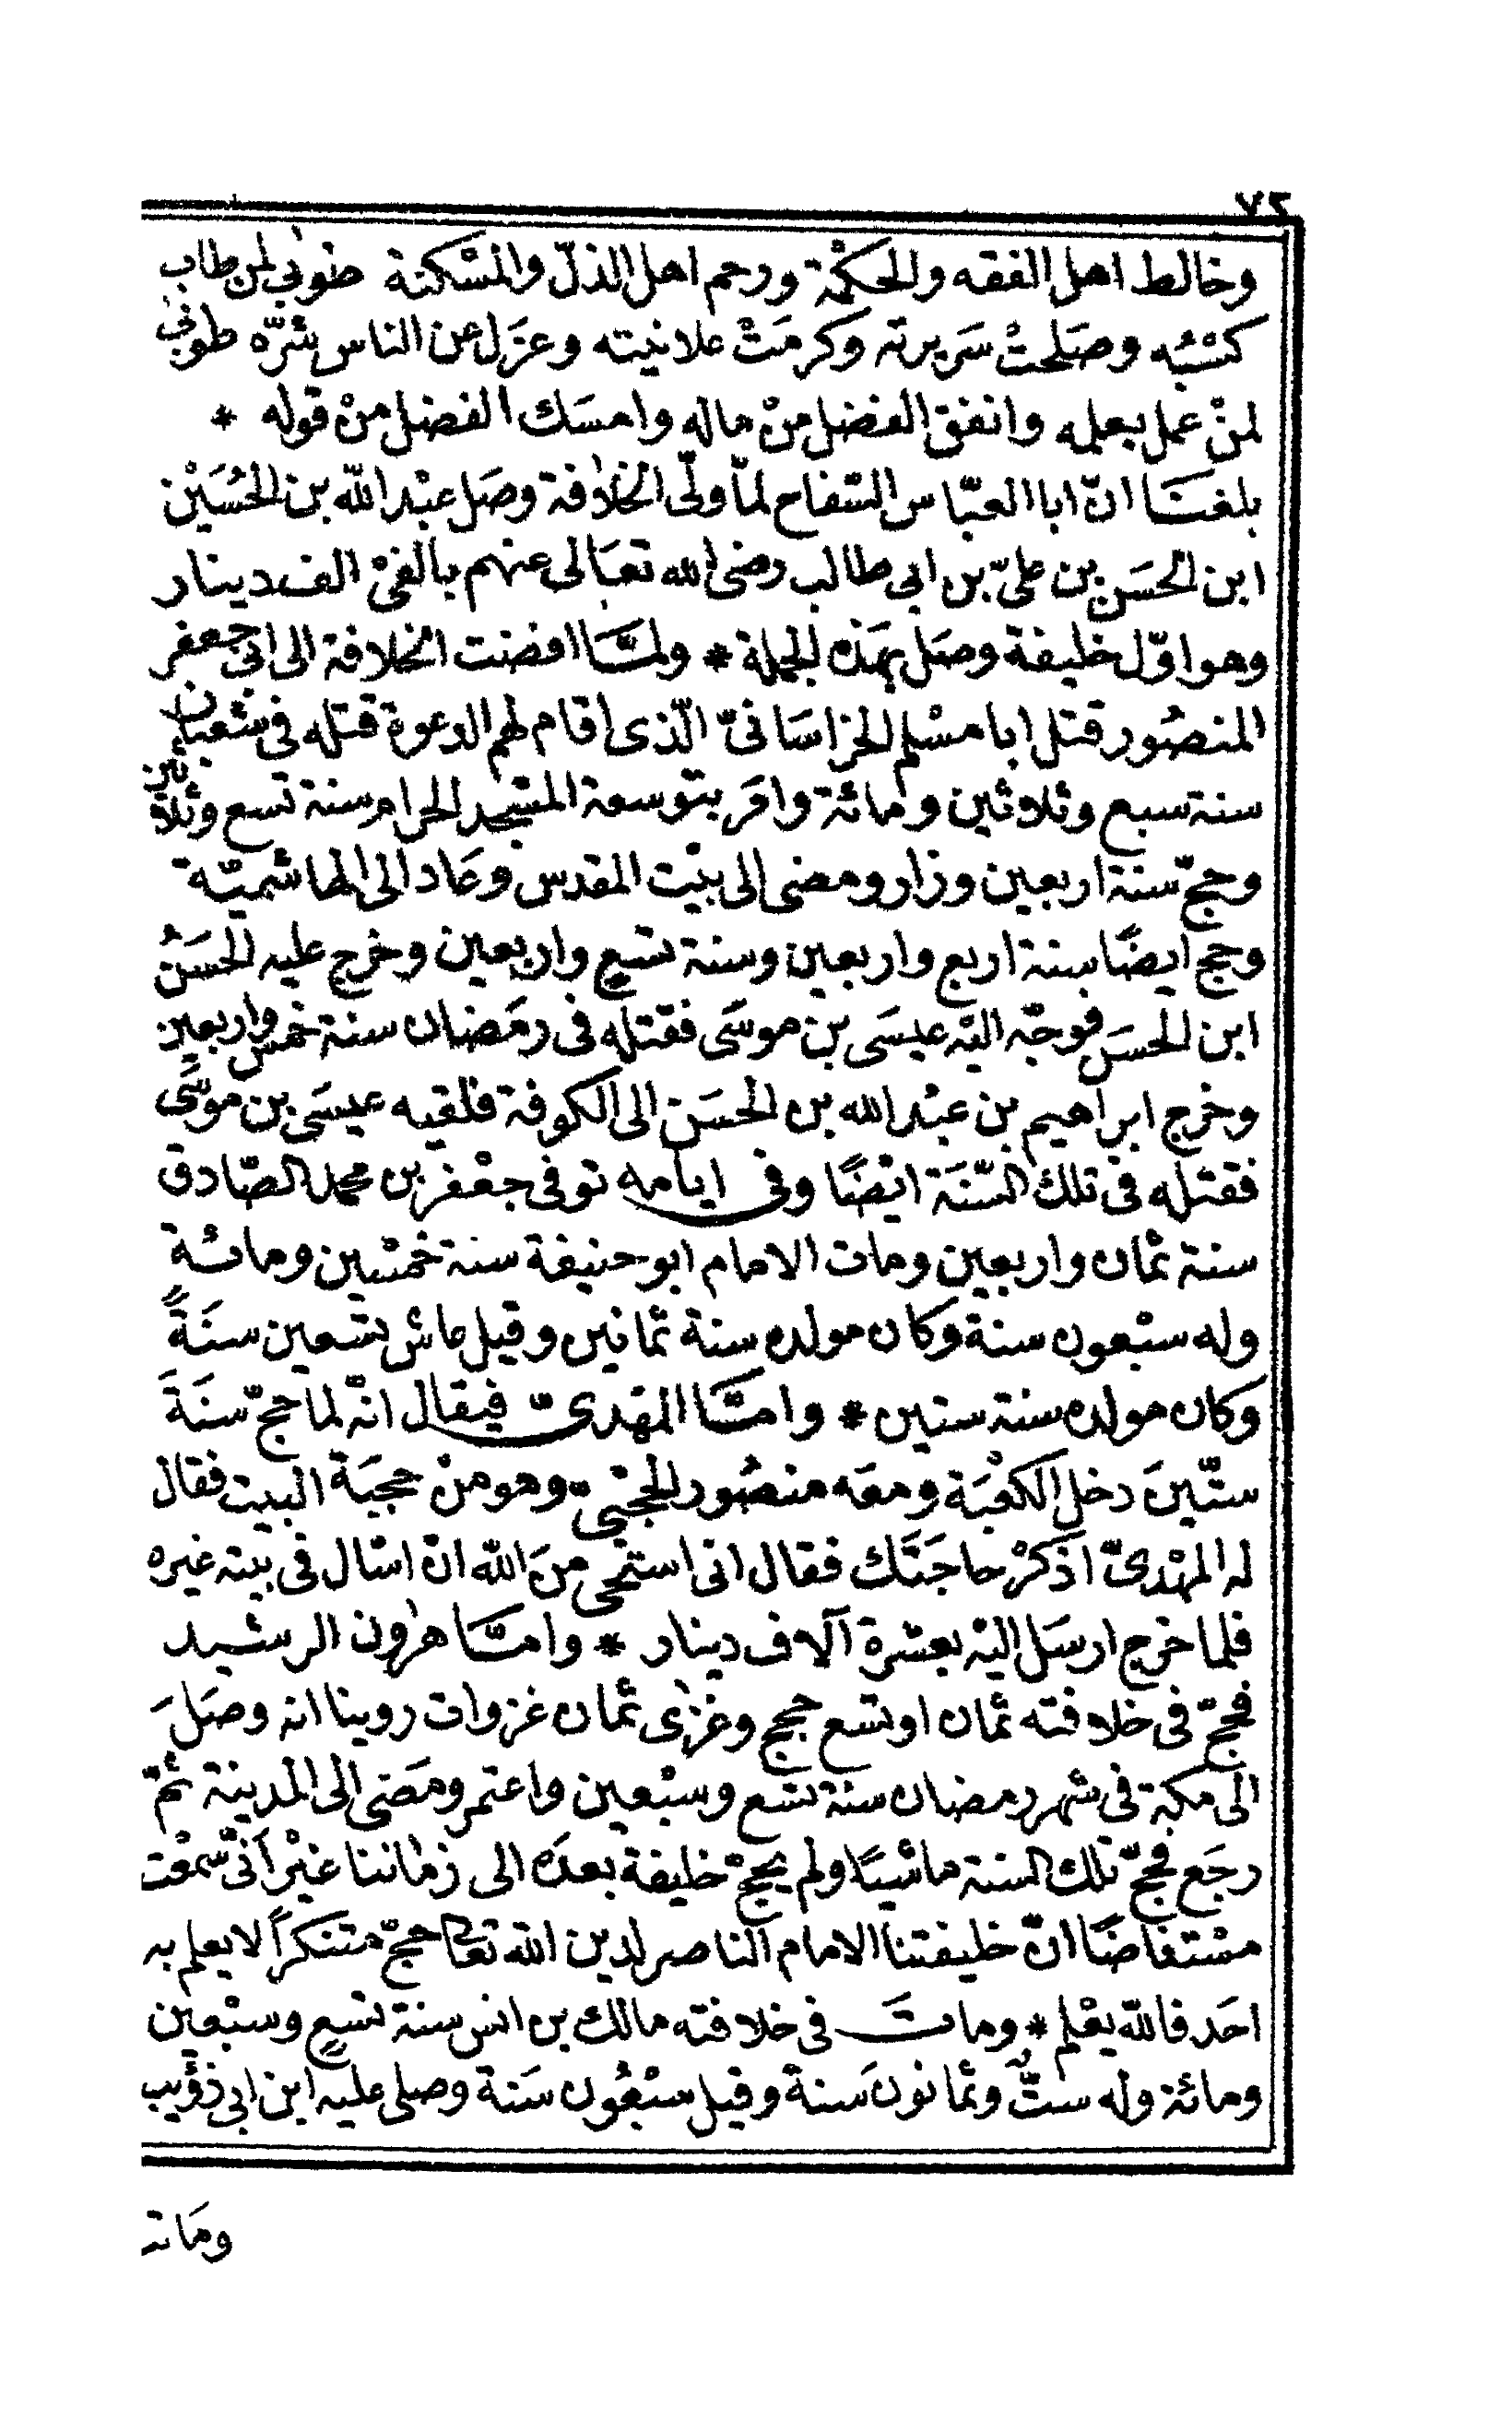 ٧٢
وخالط اهل الفقه والحكمة ورحم اهل الذلّ والمسْكنة طوبى لمن طاب
كسْبُه وصَلحتْ سَريرته وكرمَتْ علانيته وعزَل عن الناس شرّه طوبى
لمنْ عمل بعلمه وانفق الفضل منْ ماله وامسَك الفضل منْ قوله *
بلغنَا انّ ابا العبّاس السّفاح لمّا ولّى الخلافة وصَل عبْد الله بن الحُسَيْن
ابن الحسَن بن علىّ بن ابي طالب رضى الله تعَالى عنهم بالفىْ الف دينار
وهو اوّل خليفة وصَل بهَذه الجملة * ولمّا افضت الخلافة الى ابى جعفر
المنصُور قتل ابا مسْلم الخراسَانىّ الّذى اقام لهم الدعوة قتله فى شعبان
سنة سبع وثلاثين ومائة وامَر بتوسعة المسْجد الحرام سنة تسع وثلاثين
وحجّ سنة اربعين وزار ومضى الى بيْت المقدس وعَاد الى الهاشميّة
وحج ايضًا سنة اربع واربعين وسنة تسْعٍ واربعين وخرج عليه الحسَنُ
ابن الحسَن فوجّه اليْه عيسَى بن موسَى فقتله فى رمَضان سنة خمس واربعين
وخرج ابراهيم بن عبْد الله بن الحسَن الى الكوفة فلقيه عيسَى بن موسَى
فقتله فى تلك السّنَة ايْضًا وفى ايامه توفى جعْفر بن محمد الصّادق
سنة ثمان واربعين ومات الامام ابو حنيفة سنة خمْسين ومائة
وله سبْعون سنة وكان مولده سنة ثمانين وقيل عاش تسْعين سنَةً
وَكان مولده سنة ستين * وامّا المهْدىّ فيقال انّه لما حجّ سنَةَ
ستّينَ دخل الكعْبَة ومعَه منصُور الحجْبىّ وهو منْ حجبَة البيت فقال
له المهْدىّ اذكرْ حاجَتَك فقال انى استحْى منَ الله انْ اسْال فى بيته غيره
فلما خرج ارسَل اليْه بعشرة آلاف دينار * وامّا هرٰون الرشيد
فحجّ فى خلافته ثمان او تسْع حجج وغزٰى ثمان غزوات روينا انه وصَلَ
الى مكة فى شهر رمضان سنة تسْع وسبْعين واعتمر ومَضى الى المدينة ثمّ
رجَع فحجّ تلك السنة ماشيًا ولم يحجّ خليفة بعدَه الى زماننا غيْر اَنّى سَمعْت
مسْتفاضًا انّ خليفتنا الامام الناصر لدين الله تعَا حجّ متنكراً لا يعلم به
احَد فالله يعْلم * وماتَ فى خلافته مالك بن انس سنة تسْعٍ وسبْعين
ومائة وله ستٌّ وثمانونَ سَنة وقيل سبْعُون سَنة وصلى عليه ابن ابى ذؤيب
ومَاتـ